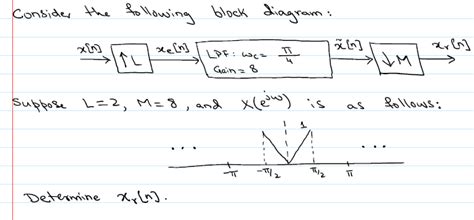 Consider the following block diagram:
x[n] ↑L xe[n] LPF: ωc = π/4 Gain = 8 x̃[n] ↓M xr[n]
Suppose L=2, M=8, and X(e^jω) is as follows:
1
... ...
-π -π/2 π/2 π
Determine xr[n].